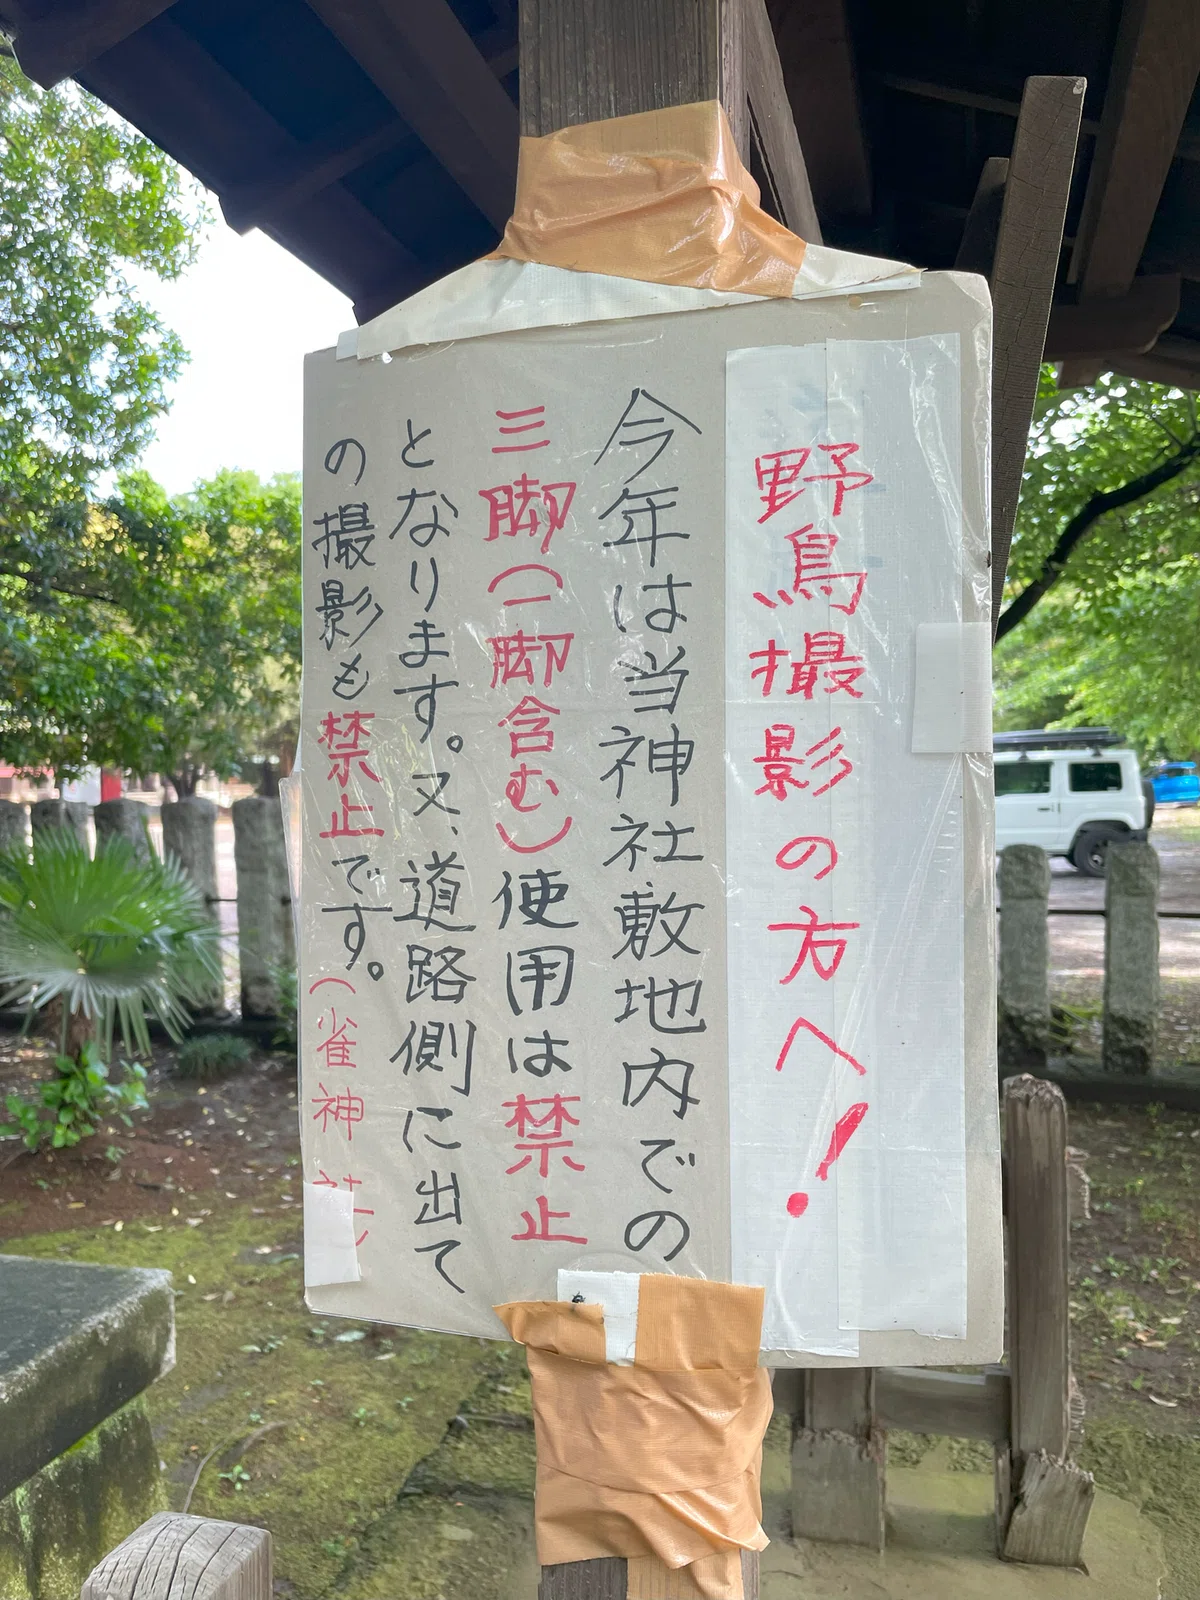 野鳥撮影の方へ!
今年は当神社敷地内での
三脚(一脚含む)使用は禁止
となります。又、道路側に出て
の撮影も禁止です。(雀神社)